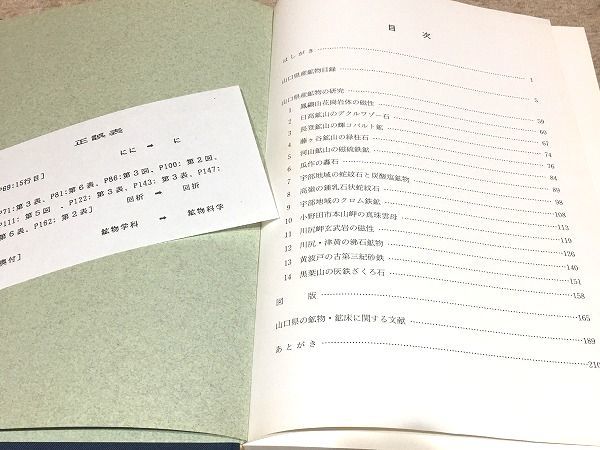 正誤表
P69:15行目] にに → に
P71:第3表、P81:第6表、P86:第3図、P100:第2図、
P111:第5図 、P122:第3表、P143:第3表、P147:
第6表、P162:第2表] 回折 → 回折
鉱物学科 → 鉱物科学
奥付]
目 次
はしがき 1
山口県産鉱物目録 5
山口県産鉱物の研究 59
1 鳳翩山花崗岩体の磁性 60
2 日高鉱山のデクルワゾー石 67
3 長登鉱山の輝コバルト鉱 74
4 藤ヶ谷鉱山の緑柱石 76
5 河山鉱山の磁硫鉄鉱 84
6 瓜作の轟石 89
7 宇部地域の蛇紋石と炭酸塩鉱物 98
8 高嶺の鍾乳石状蛇紋石 108
9 宇部地域のクロム鉄鉱 113
10 小野田市本山岬の真珠雲母 119
11 川尻岬玄武岩の磁性 126
12 川尻・津黄の沸石鉱物 140
13 黄波戸の古第三紀砂鉄 151
14 黒葉山の灰鉄ざくろ石 158
図 版 165
山口県の鉱物・鉱床に関する文献 189
あとがき 210